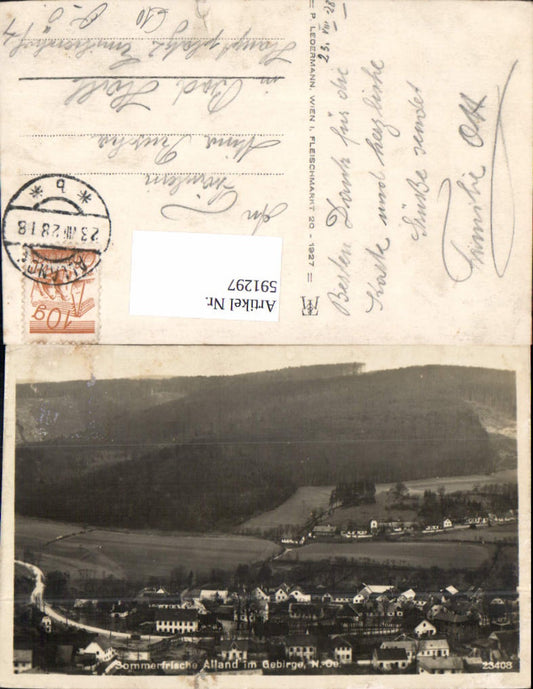 Besten Dank für die
Karte und herzliche
Grüße sendet
Familie Ott
23. VIII 28
= P. LEDERMANN, WIEN I, FLEISCHMARKT 20 - 1927 =
An
Fräulein
Anna
in Bad Hall
Hauptplatz
* b *
23.VIII.28 18
ALLAND
10g
Artikel Nr.
591297
Sommerfrische Alland im Gebirge, N.-Oe.
23408